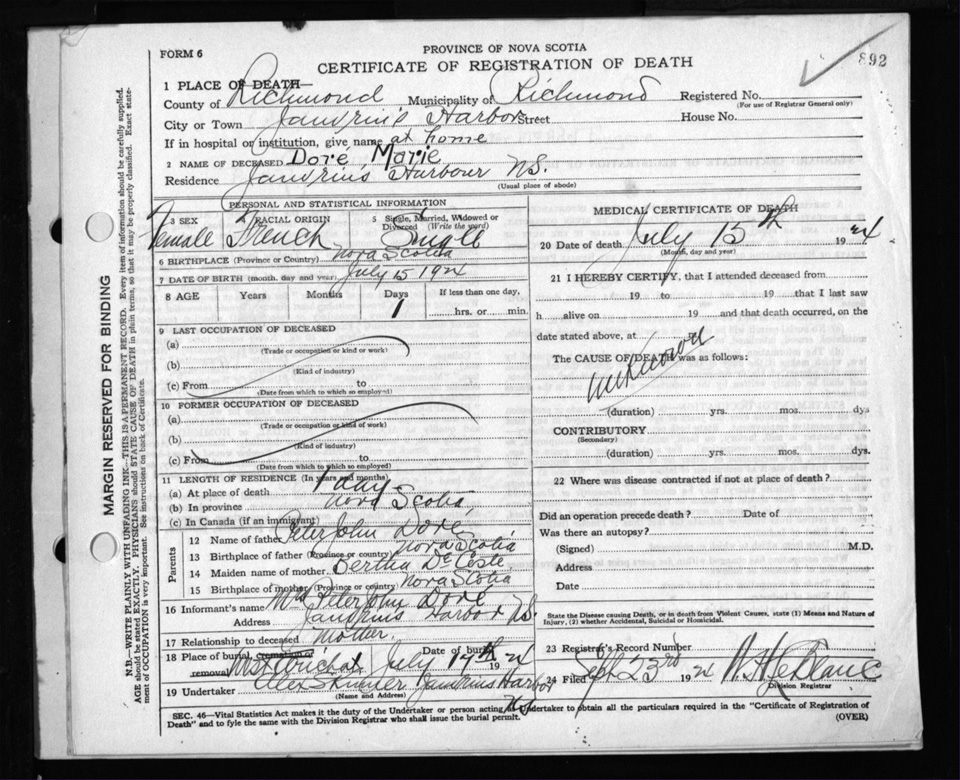 FORM 6
PROVINCE OF NOVA SCOTIA
CERTIFICATE OF REGISTRATION OF DEATH
892
1 PLACE OF DEATH—
County of Richmond Municipality of Richmond Registered No.
(For use of Registrar General only)
City or Town Janvrin's Harbor Street House No.
If in hospital or institution, give name at home
2 NAME OF DECEASED Doré Marie
Residence Janvrins Harbour NS.
(Usual place of abode)
PERSONAL AND STATISTICAL INFORMATION
3 SEX RACIAL ORIGIN 5 Single, Married, Widowed or Divorced (Write the word)
Female French Single
6 BIRTHPLACE (Province or Country) Nova Scotia
7 DATE OF BIRTH (month, day and year) July 15 1924
8 AGE Years Months Days If less than one day,
1 hrs. or min.
9 LAST OCCUPATION OF DECEASED
(a)
(Trade or occupation or kind or work)
(b)
(Kind of industry)
(c) From to
(Date from which to which so employed)
10 FORMER OCCUPATION OF DECEASED
(a)
(Trade or occupation or kind of work)
(b)
(Kind of industry)
(c) From to
(Date from which to which so employed)
11 LENGTH OF RESIDENCE (In years and months)
(a) At place of death 1 day
(b) In province Nova Scotia,
(c) In Canada (if an immigrant)
Parents
12 Name of father Peter John Dore
13 Birthplace of father (Province or country) Nova Scotia
14 Maiden name of mother Bertha De Coste
15 Birthplace of mother (Province or country) Nova Scotia
16 Informant's name Mrs Peter John Dore
Address Janvrins Harbor NS.
17 Relationship to deceased Mother.
18 Place of burial, cremation or removal Date of burial
West Arichat July 17th 1924
19 Undertaker Janvrins Harbor
(Name and Address) NS
MEDICAL CERTIFICATE OF DEATH
20 Date of death July 15th 1924
(Month, day and year)
21 I HEREBY CERTIFY, that I attended deceased from
19 to 19 that I last saw
h alive on 19 and that death occurred, on the
date stated above, at
The CAUSE OF DEATH was as follows:
unknown
(duration) yrs. mos. dys
CONTRIBUTORY
(Secondary)
(duration) yrs. mos. dys.
22 Where was disease contracted if not at place of death?
Did an operation precede death? Date of
Was there an autopsy?
(Signed) M.D.
Address
Date
State the Disease causing Death, or in death from Violent Causes, state (1) Means and Nature of
Injury, (2) whether Accidental, Suicidal or Homicidal.
23 Registrar's Record Number
24 Filed Sept 23rd 1924 LeBlanc
Division Registrar
SEC. 46—Vital Statistics Act makes it the duty of the Undertaker or person acting as Undertaker to obtain all the particulars required in the "Certificate of Registration of
Death" and to fyle the same with the Division Registrar who shall issue the burial permit.
(OVER)
MARGIN RESERVED FOR BINDING
N.B.—WRITE PLAINLY WITH UNFADING INK—THIS IS A PERMANENT RECORD. Every item of information should be carefully supplied.
AGE should be stated EXACTLY. PHYSICIANS should STATE CAUSE OF DEATH in plain terms, so that it may be properly classified. Exact state-
ment of OCCUPATION is very important. See instructions on back of Certificate.